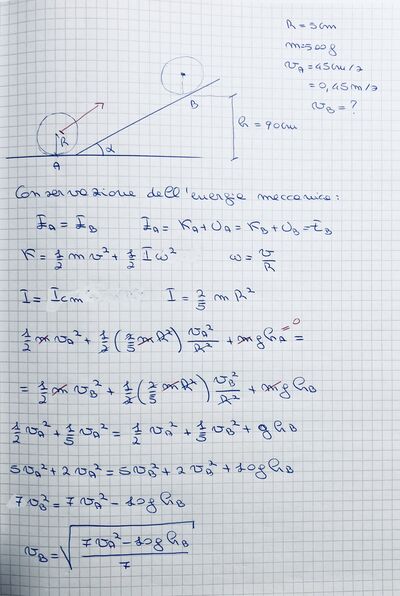 R = 5cm
m = 500g
v_A = 45cm/s
= 0,45m/s
v_B = ?
B
R
α
A
h = 90cm
Conservazione dell'energia meccanica:
E_A = E_B   E_A = K_A + U_A = K_B + U_B = E_B
K = 1/2 m v² + 1/2 I ω²   ω = v/R
I = I_cm   I = 2/5 m R²
1/2 m v_A² + 1/2 (2/5 m R²) v_A²/R² + m g h_A = 0 =
= 1/2 m v_B² + 1/2 (2/5 m R²) v_B²/R² + m g h_B
1/2 v_A² + 1/5 v_A² = 1/2 v_A² + 1/5 v_B² + g h_B
5v_A² + 2v_A² = 5v_B² + 2v_B² + 10g h_B
7v_B² = 7v_A² - 10g h_B
v_B = √((7v_A² - 10g h_B)/7)